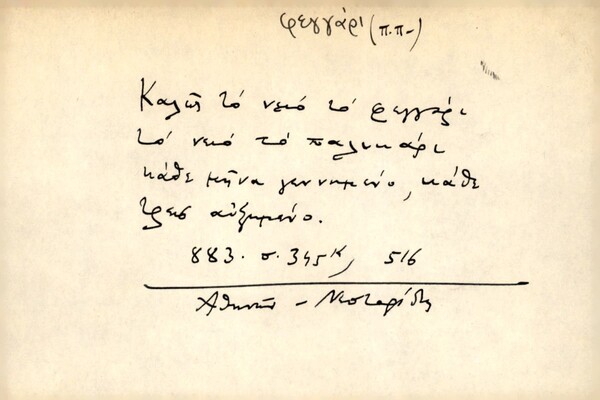 φεγγάρι (π.π-)
Καλῶς τό νειό τό φεγγάρι
τό νειό τό παλικάρι
κάθε μῆνα γεννημένο, κάθε
τρεῖς αὐξημένο.
883. σ. 345 516
Ἀθηνῶν -